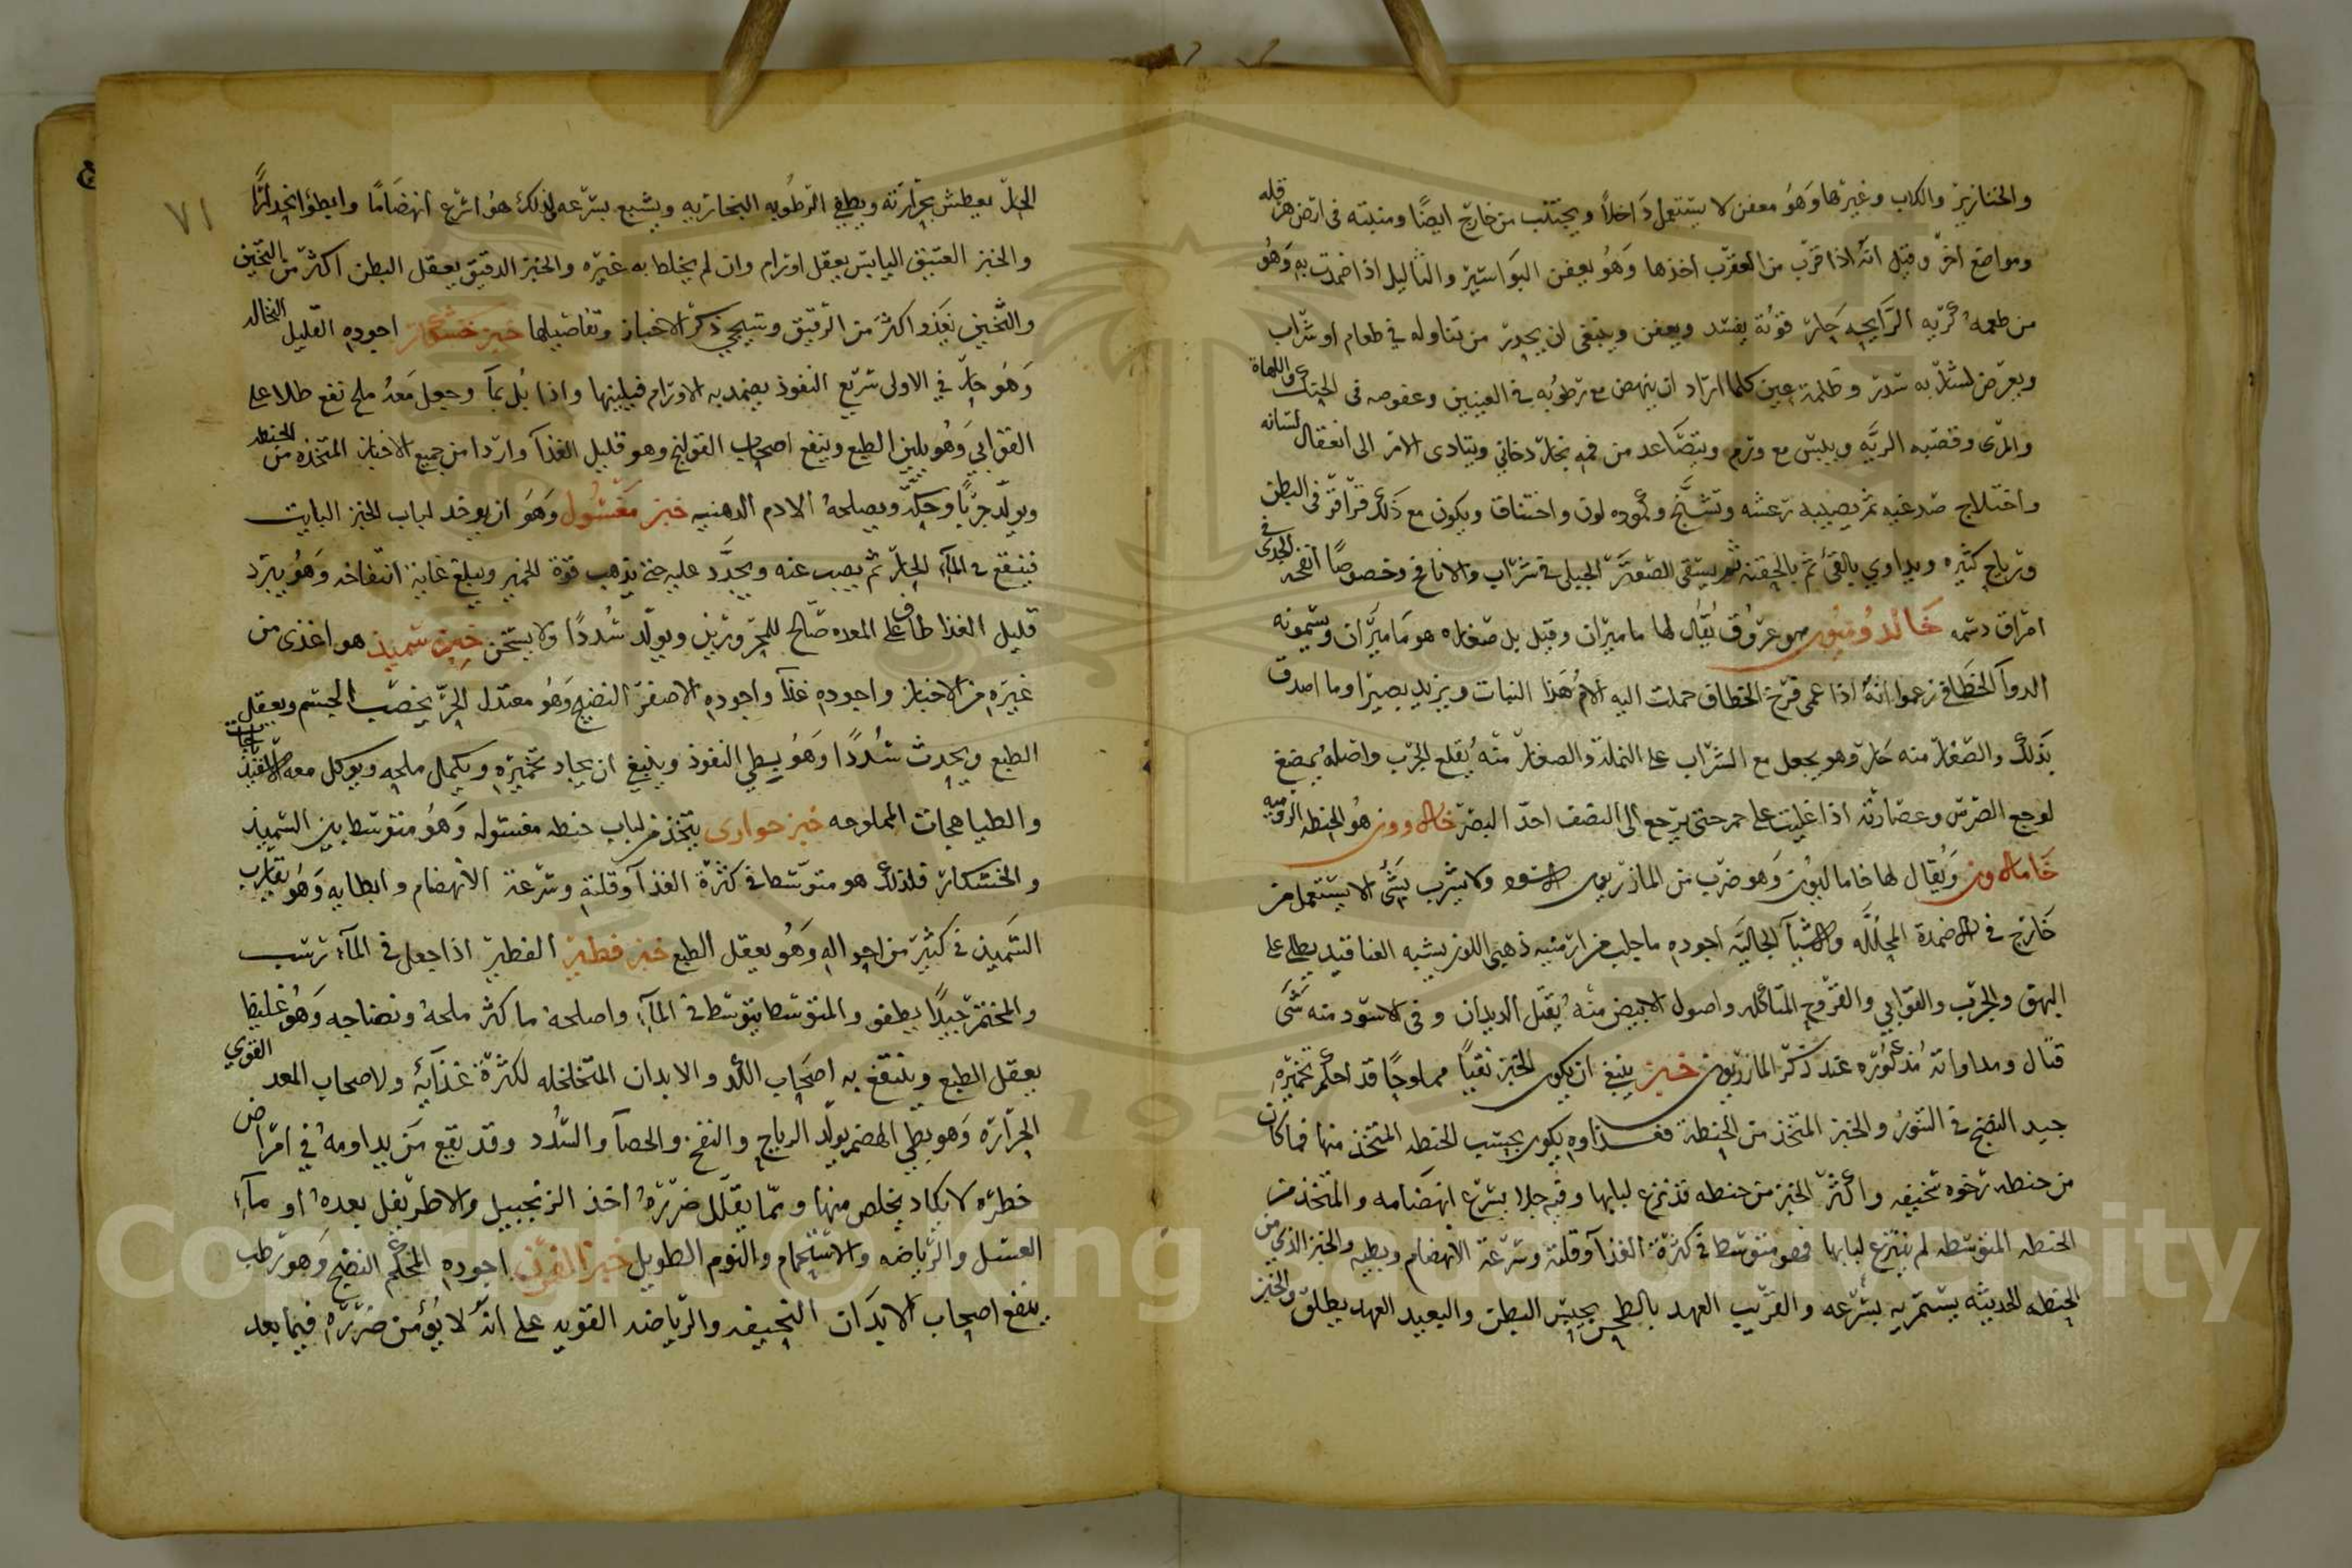 والخنازير والكلاب وغيرها وَهُوَ معفن لا يستعمل دَاخلاً ويجتنب من خارج ايضًا ومنبته فى ارض هرقله
ومواضع اخر وقيل انه اذا قرب من العقرب اخذها وَهُوَ يعفن البَواسير والثاليل اذا ضمدت به وَهُوَ
من طعمه كريه الرَايحه حَار قوته يفسد ويعفن وينبغى ان يحدر من تناوله في طعام او شراب
ويعرض لمثله به سدر وظلمة عين كلما اراد ان ينهض مع رطوبه فى العينين وعفوصه فى الحنك واللهاة
والمرى وقصبه الريَه ويلبس مع ورم ويتصَاعد من فمه بخار دخانى ويتادى الامر الى انعقال لسانه
واختلاج صدغيه ثم يصيبه رعشه وتشنج وكموده لون واختناق ويكون مع ذلك قراقر فى البطن
ورياح كثيره ويداوي بالقئ ثم بالحقنه ثم يسقى الصعتر الجبلى فى شراب والانافح وخصوصًا انفحه الجدى فى
امراق دسمه خَالدُونيون هو عروُق يُقال لها ماميران وقيل بل صغاره هو مَاميران ويسمونه
الدوآ الخطافى زعموا انهُ اذا عمى فرخ الخطاف حملت اليه الامُ هَذا النبات ويزيد بصيرا وما اصدق
بذلك والصغار منه حَار وهو يجعل مع الشراب على النمله والصغار منه يُقلع الجرب واصله يُمضغ
لوجع الضرس وعصارته اذا غليت على جمر حتى يرجع الى النصف احدّ البصر خالاوون هُو الحنطه الروميه
خَامالاون وَيُقال لها خامااليون وَهو ضرب من المازريون الاسود ولا يشرب بشئ الا يستعمل من
خَارج فى الاضمدة المحلله والاشيآ الجاليَه اجوده ما جلب من ارمنيه ذهبى اللون يشبه العناقيد يطلى على
البهق والجرب والقوابى والقروح المتاكله واصول الابيض منه يُقتل الديدان وفى الاسود منه شَى
قتال ومداواته مذكوره عند ذكر المازريون خبز ينبغى ان يكون الخبز نقيًا مملوحًا قد احكم تخميره
جيد النضج فى التنور والخبز المتخذ من الحنطة فغذاوه يكون بحسب الحنطه المتخذ منها فما كان
من حنطه رخوه سخيفه واكثر الخبز من حنطه قد نزع لبابها وقيه جلا يسرع انهضامه والمتخذ من
الحنطه المتوسطه لم ينتزع لبابها فهو متوسطا فى كثرة الغذآ وقلته وسرعة الانهضام وبطيه والخبز الذى من
الحنطه الحديثه يستمريه بسرعه والقريب العهد بالطحن يحبس البطن والبعيد العهد يطلق والخبز
٧١
الحار يعطش بحرارته ويطفي الرطوبه البخاريه ويشبع بسرعه لذلك هُو اسرع انهضَامًا وابطؤ انحدارًا
والخبز العتيق اليابس يعقل اورام وان لم يخلط به غيره والخبز الدقيق يعقل البطن اكثر من الثخين
والثخين يغذو اكثر من الرقيق وسيجي ذكر الاخباز وتفاصيلها خبز خشكار اجوده القليل النخاله
وَهُو حار في الاولى سريع النفوذ يضمد به الاورام فيلينها واذا بُل بمآ وجعل معَهُ ملح نفع طلا على
القوابى وَهُو يلين الطبع وينفع اصحاب القولنج وهو قليل الغذآ واردا من جميع الاخباز المتخذه من الحنطه
ويولد جربًا وحكه ويصلحهُ الادم الدهنيه خبز مَغسُول وَهُو ان يوخد لباب الخبز البايت
فينقع فى المآء الحار ثم يصب عنه ويجدَّد عليه حتى يذهب قوة الخمير ويبلغ غاية انتفاخه وَهُو يبرد
قليل الغذا طاف على المعده صَالح للمحرورين ويولد سُددًا ولا يسخن خبز سميذ هو اغذى من
غيره من الاخباز واجوده غذآ واجوده الاصفر النضيج وَهُو معتدل الحر يخصب الجسم ويعقل
الطبع ويحدث سُددًا وَهُو بطي النفوذ وينبغى ان يجاد تخميره ويكمل ملحه ويوكل معه الاسفيذباجات
والطباهجات المملوحه خبز حوارى يتخذ من لباب حنطه مغسوله وَهُو متوسط بين السميذ
والخشكار فلذلك هو متوسّطا فى كثرة الغذآ وقلته وسرعة الانهضام وابطايه وَهُو يقارب
السَميذ فى كثير من احواله وَهُو يعقل الطبع خبز فطير الفطير اذا جعل فى المآء رسب
والمختمر جيدًا يطفو والمتوسط يتوسط فى المآء واصلحهُ ما كثر ملحهُ ونضاجه وَهُو غليظا
يعقل الطبع وينتفع به اصحَاب الكد والابدان المتخلخله لكثرة غذآيه ولاصحاب المعد القوي
الحرَاره وَهو بطي الهضم يولد الرياح والنفخ والحصآ والسُدد وقد يقع مَن يداومهُ في امراض
خطره لا يكاد يخلص منها ومما يقلل ضررهُ اخذ الزنجبيل والاطريفل بعدهُ او مآء
العسل والرياضه والاستحمام والنوم الطويل خبز الفرنى اجوده المحكم النضيج وَهو رطب
ينفع اصحاب الابدَان النحيفه والرياضه القويه على انه لا يؤمن ضرره فيما بعد